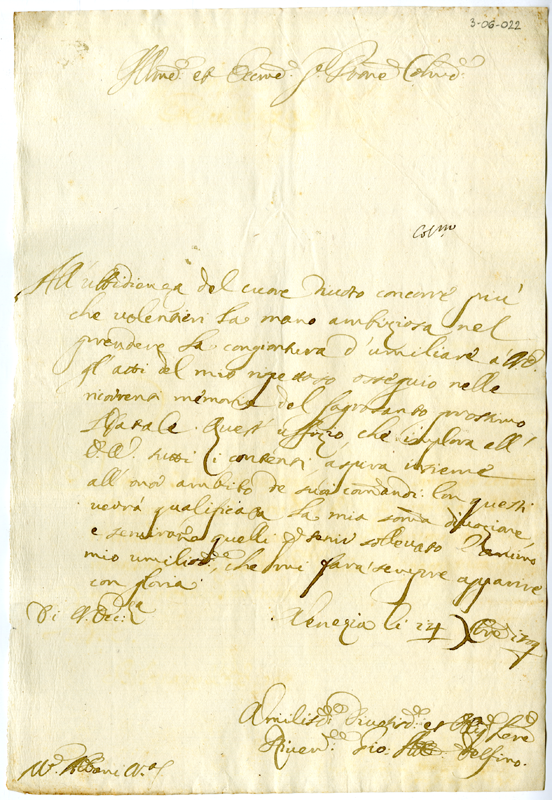 3-06-022
Illmo et Eccmo Sr Prone Colmo
Colmo
All' ubbidienza del cuore divoto concorre più
che volentieri la mano ambiziosa nel
prendere la congiontura d'umiliare a V.E.
gl'atti del mio ossequio nelle
ricorrenti memorie del sagrosanto prossimo
Natale. Quest' uffizio, che implora all'
E.V. tutti i contenti, aspira insieme
all' onor ambito de suoi comandi. Con questi
vedrà qualificata la mia divozione,
e quelli
mio umilissmo, che mi farà sempre apparire
con gloria.
Di V. Eccza
Venezia li 24 Xbre
Umilissmo Divotissmo et Servre
Gio. Delfino.
Albani